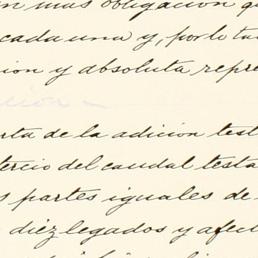 n mas obligacion qu
cada una y, por lo ta
ion y absoluta repre
rta de la adicion test
tercio del caudal testa
s partes iguales de
diez legados y afect